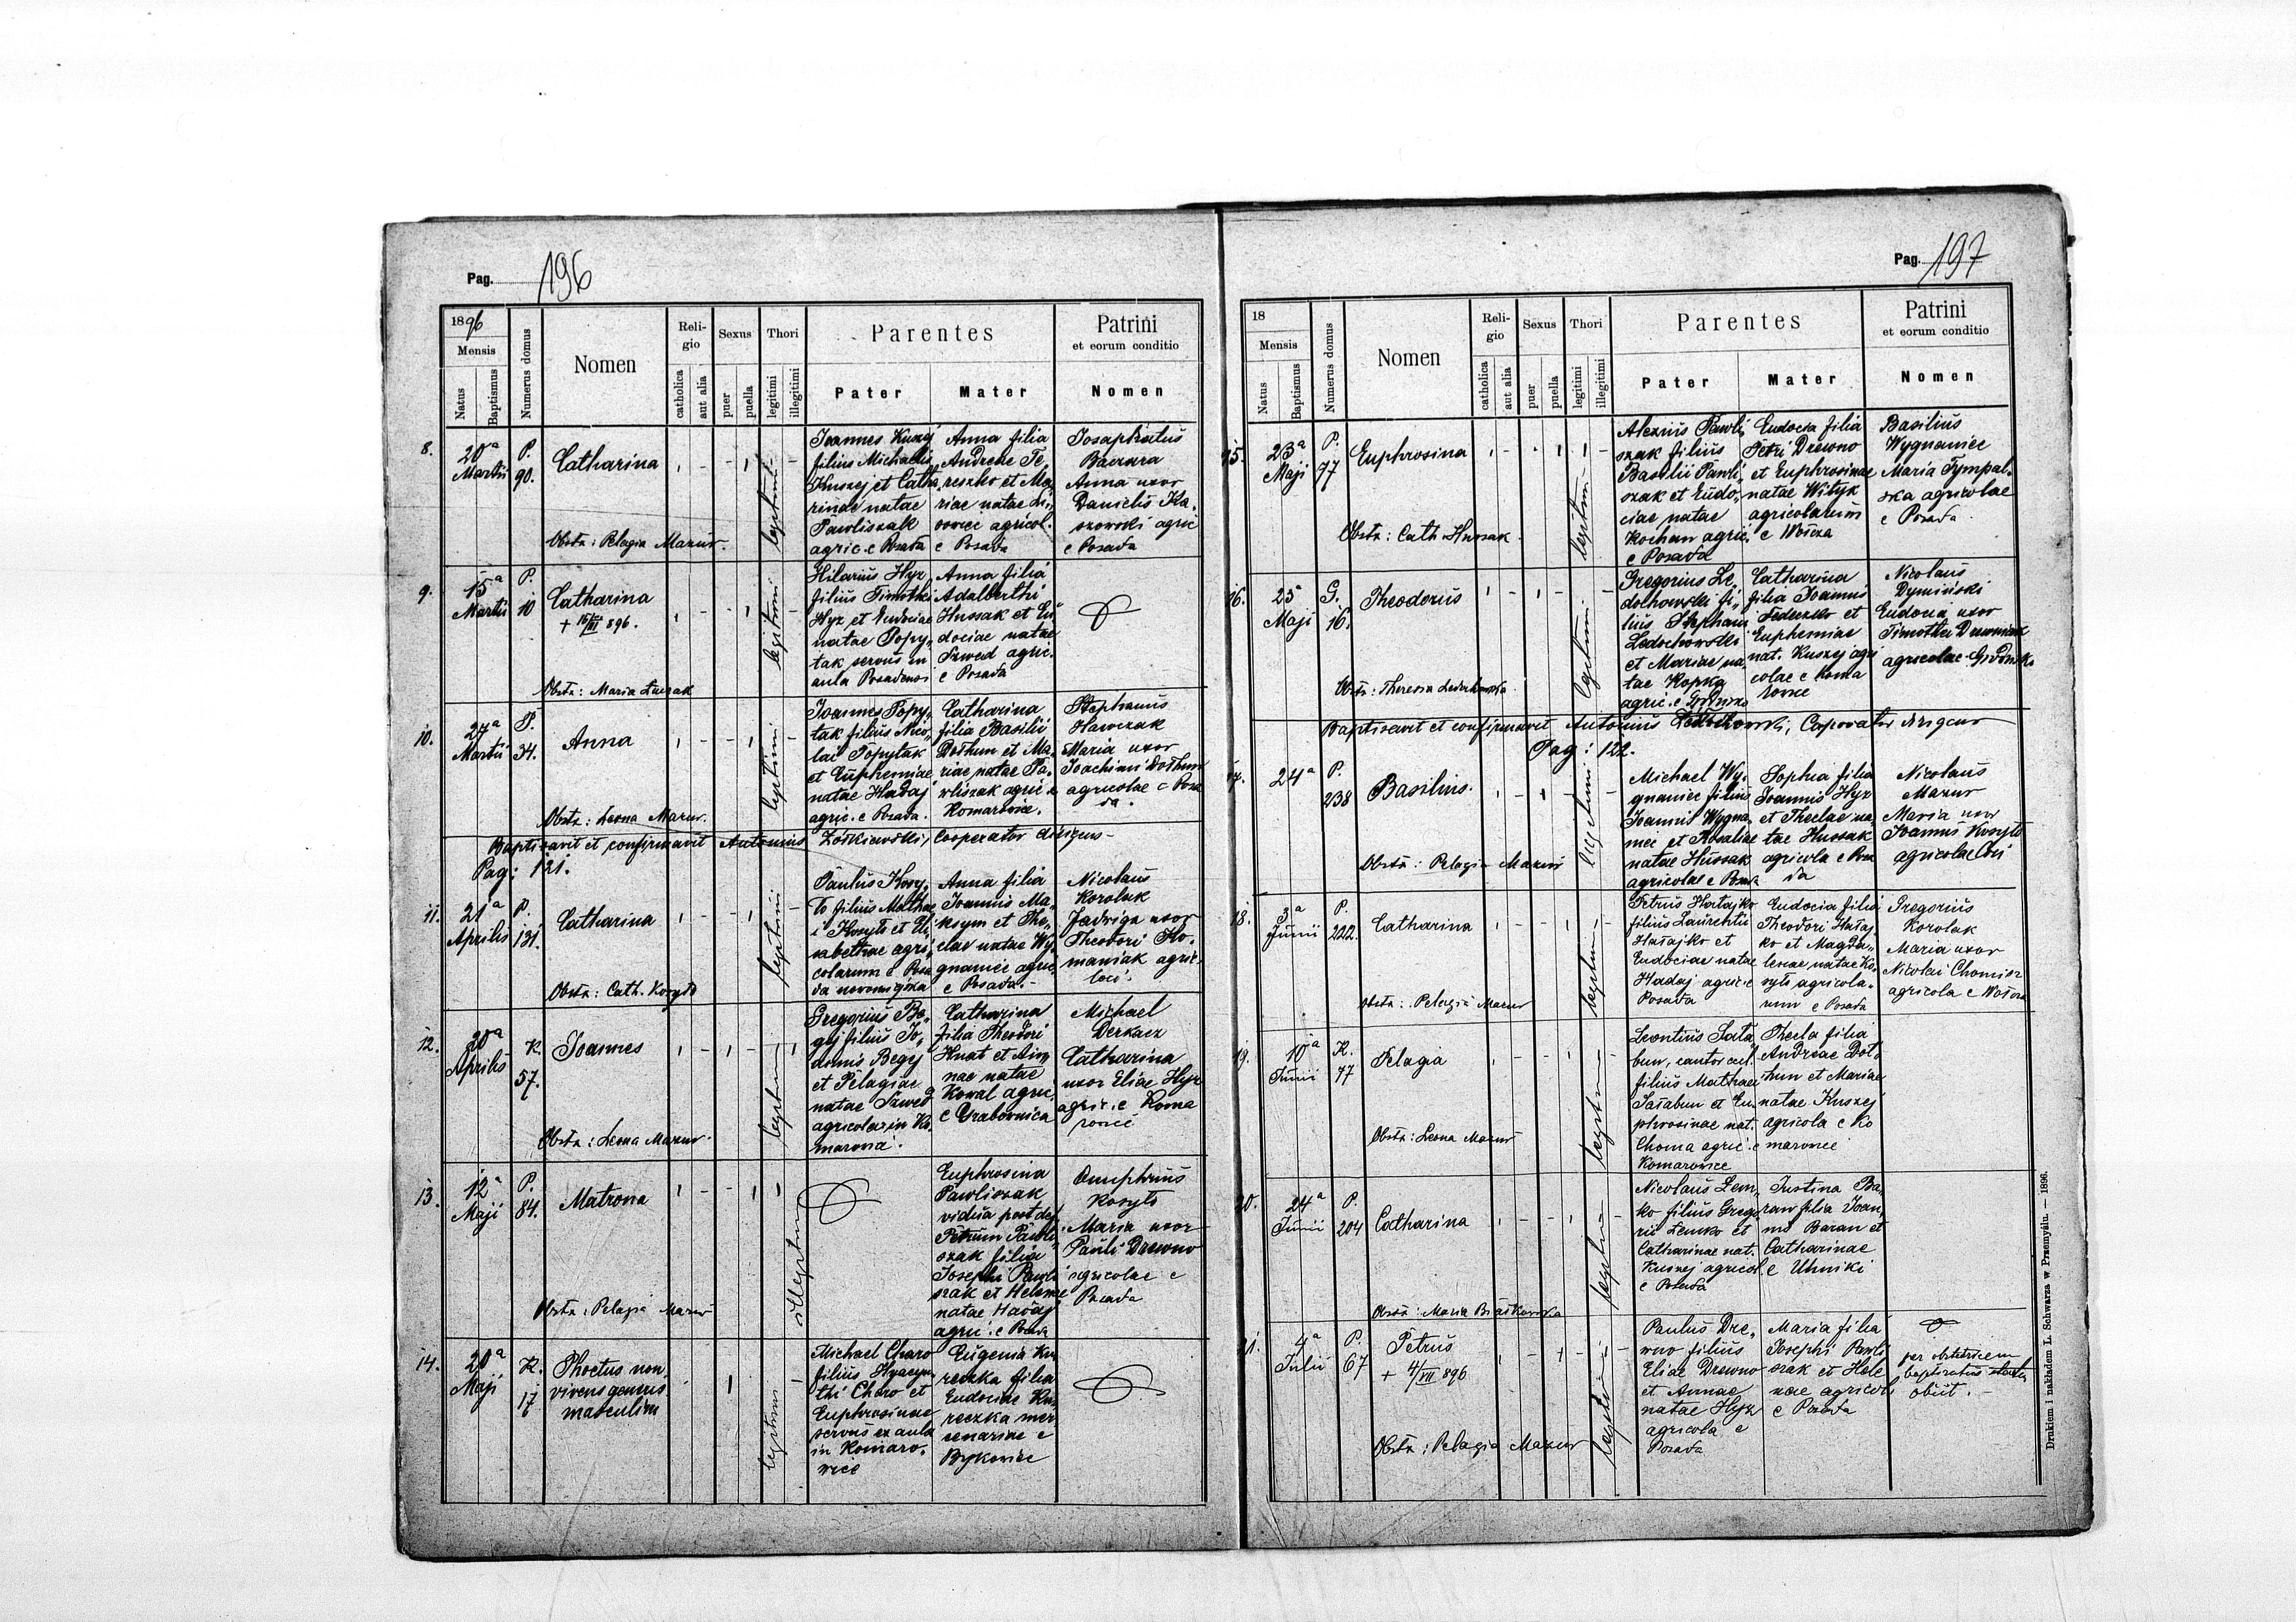 Pag. 196
1896
Mensis
Natus
Baptismus
Numerus domus
Nomen
Reli-
gio
catholica
aut alia
Sexus
puer
puella
Thori
legitimi
illegitimi
Parentes
Pater
Mater
Patrini
et eorum conditio
Nomen
8.
20a
Martii
P.
90.
Catharina
Obstx: Pelagia Mazur.
legitimi
Joannes Kuszej
filius Michaelis
Kuszej et Catha
rinae natae
Pawliszak
agric. e Posada
Anna filia
Andreae Te,
reszko et Ma,
riae natae
agricol.
e Posada
Josaphatus
Anna uxor
Danielis Ka,
szowski agric
e Posada
9.
15a
Martii
P.
10
Catharina
+ 16/III 896.
Obstx: Maria
legitimi
Hilarius Hyz
filius Timothei
Hyz et Eudociae
natae Popy,
tak servus in
aula Posadensi
Anna filia
Adalberthi
Hussak et Eu
dociae natae
Szwed agric.
e Posada
10.
27a
Martii
P.
34.
Anna
Obstx: Leona Mazur.
legitimi
Joannes Popy,
tak filius Nico,
lai Popytak
et Euphemiae
natae Hadaj
agric. e Posada.
Catharina
filia Basilii
Dothun et Ma,
riae natae Pa,
wliszak agric e
Komarowice.
Stephanus
Hawczak
Maria uxor
Joachimi Dothun
agricolae e Posa
da.
Baptisavit et confirmavit Antonius cooperator dirigens
Pag: 121.
11.
21a
Aprilis
P.
131.
Catharina
Obstx: Cath. Kosyło
legitimi
Paulus Kosy,
ło filius Mathae
i Kosyło et Eli
sabethae agri,
colarum e Posa
da nowomiejska
Anna filia
Joannis Ma,
ksym et The,
clae natae Wy,
gnaniec agric,
e Posada.
Nicolaus
Korolak
Jadwiga uxor
Theodori Ro,
maniak agric.
loci.
12.
20a
Aprilis
K.
57.
Joannes
Obstx: Leona Mazur.
legitimi
Gregorius Be,
gej filius Jo,
annis Begej
et Pelagiae
natae Szwed
agricolae in Ko,
marowice.
Catharina
filia Theodori
Hnat et An
nae natae
Kowal agric,
e Grabownica
Michael
Derkacz
Catharina
uxor Eliae Hyz
agric. e Koma
rowice
13.
12a
Maji
P.
84.
Matrona
Obstx: Pelagia Mazur
illegitimi
Euphrosina
Pawliszak
vidua post def.
Petrum Pawli
szak filia
Josephi Pawli
szak et Helenae
natae Hadaj
agric. e Posada
Onuphrius
Kosyło
Maria uxor
Pauli Drewno
agricolae e
Posada
14.
20a
Maji
K.
17
Phoetus non
vivens generis
masculini
legitimi
Michael Charo
filius Hyacyn,
thi Charo et
Euphrosinae
servus ex aula
in Komaro,
wice
Eugenia Ku
reczka filia
Eudociae Ku,
reczka mer
cenariae e
Bykowice
Pag. 197
18
Mensis
Natus
Baptismus
Numerus domus
Nomen
Reli-
gio
catholica
aut alia
Sexus
puer
puella
Thori
legitimi
illegitimi
Parentes
Pater
Mater
Patrini
et eorum conditio
Nomen
15.
23a
Maji
P.
77
Euphrosina
Obstx: Cath Hussak.
legitimi
Alexius Pawli,
szak filius
Basilii Pawli,
szak et Eudo,
ciae natae
Kochan agric.
e Posada
Eudocia filia
Petri Drewno
et Euphrosinae
natae Wityk
agricolarum
e Wołcza
Basilius
Wygnaniec
Maria Tympal,
ska agricolae
e Posada
16.
25
Maji
G.
16.
Theodorus
Obstx: Theresia Ledochowska.
legitimi
Gregorius Le,
dochowski fi,
lius Stephani
Ledochowski
et Mariae na
tae Kopka
agric. e
Catharina
filia Joannis
Fedeczko et
Euphemiae
nat. Kuszej agri
colae e Koma
rowice
Nicolaus
Dymiński
Eudocia uxor
Timothei
agricolae
Baptisavit et confirmavit Antonius cooperator dirigens
Pag: 122.
17.
24a
P.
238
Basilius.
Obstx: Pelagia Mazur
legitimi
Michael Wy,
gnaniec filius
Joannis Wygna,
niec et Rosaliae
natae Hussak
agricolae e Posada
Sophia filia
Joannis Hyz
et Theclae na,
tae Hussak
agricola e Posa
da
Nicolaus
Mazur
Maria uxor
Joannis Kosyło
agricolae loci
18.
3a
Junii
P.
222.
Catharina
Obstx: Pelagia Mazur
legitimi
Petrus Hałajko
filius Laurentii
Hałajko et
Eudociae natae
Hadaj agric. e
Posada
Eudocia filia
Theodori Hałaj,
ko et Magda,
lenae natae Ko,
syło agricola,
rum e Posada
Gregorius
Korolak
Maria uxor
Nicolai Chomicz
agricola e Wołcza
19.
10a
Junii
K.
77
Pelagia
Obstx: Leona Mazur
legitimi
Leontius Sała
bun, cantor eccl.
filius Mathaei
Sałabun et Eu,
phrosinae nat.
Choma agric. e
Komarowice
Thecla filia
Andreae Dot,
hun et Mariae
natae Kuszej
agricola e Ko
marowice
20.
24a
Junii
P.
204
Catharina
Obstx: Maria
legitimi
Nicolaus Łem,
ko filius Grego
rii Łemko et
Catharinae nat.
Kuszej agricol.
e Posada
Justina Ba,
ran filia Joan,
nis Baran et
Catharinae
e Uhniki
21.
4a
Julii
P.
67
Petrus
+ 4/VII 896
Obstx: Pelagia Mazur
legitimi
Paulus Dre,
wno filius
Eliae Drewno
et Annae
natae Hyz
agricola e
Posada
Maria filia
Josephi Pawli
szak et Hele
nae agricol
e Posada
per obstetricem
baptisatus
obiit.
Drukiem i nakładem L. Schwarza w Przemyślu. — 1896.